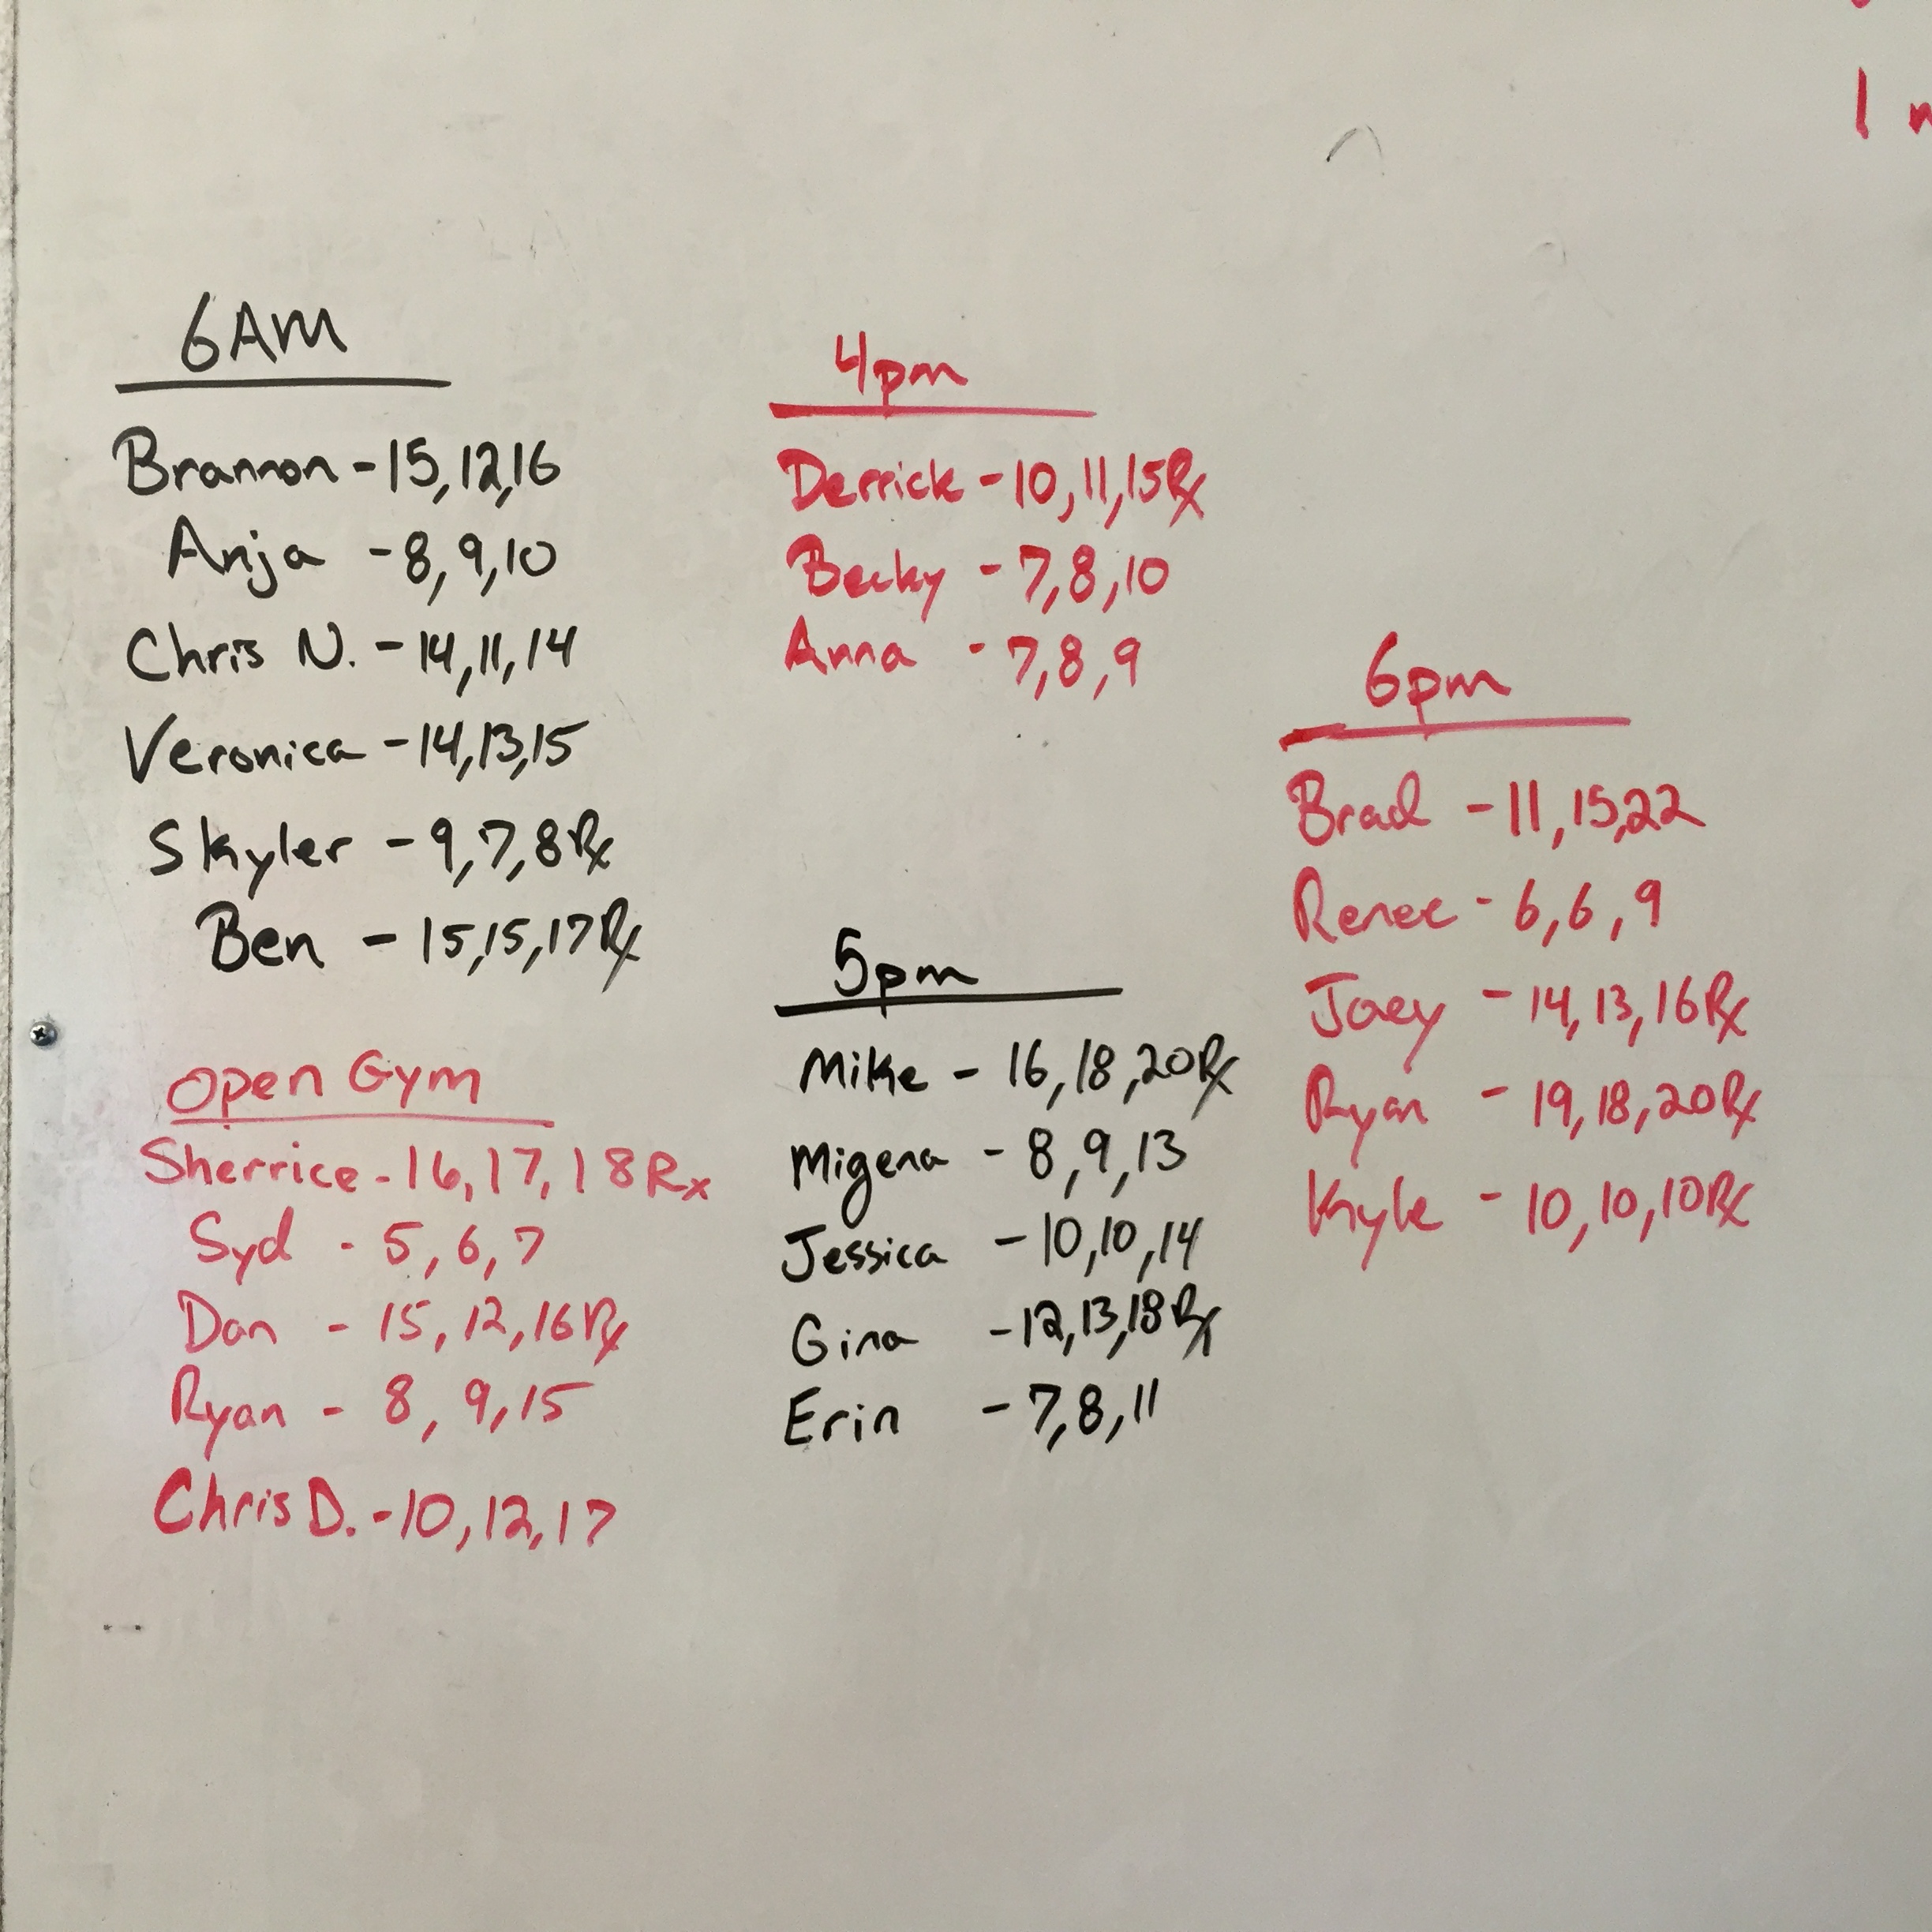 6AM
Brannon - 15, 12, 16
Anja - 8, 9, 10
Chris N. - 14, 11, 14
Veronica - 14, 13, 15
Skyler - 9, 7, 8 Rx
Ben - 15, 15, 17 Rx
Open Gym
Sherrice - 16, 17, 18 Rx
Syd - 5, 6, 7
Dan - 15, 12, 16 Rx
Ryan - 8, 9, 15
Chris D. - 10, 12, 17
4pm
Derrick - 10, 11, 15 Rx
Becky - 7, 8, 10
Anna - 7, 8, 9
5pm
Mike - 16, 18, 20 Rx
Migena - 8, 9, 13
Jessica - 10, 10, 14
Gina - 12, 13, 18 Rx
Erin - 7, 8, 11
6pm
Brad - 11, 15, 22
Renee - 6, 6, 9
Joey - 14, 13, 16 Rx
Ryan - 19, 18, 20 Rx
Kyle - 10, 10, 10 Rx
1